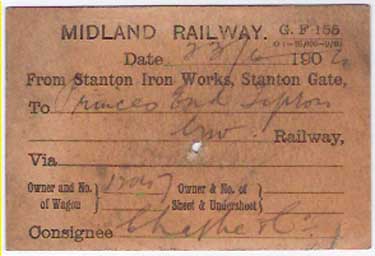 MIDLAND RAILWAY. G. F 155
Date 23/6 190
From Stanton Iron Works, Stanton Gate,
To Princes End Tipton
GW. Railway,
Via
Owner and No. of Wagon } Owner & No. of Sheet & Undersheet }
Consignee